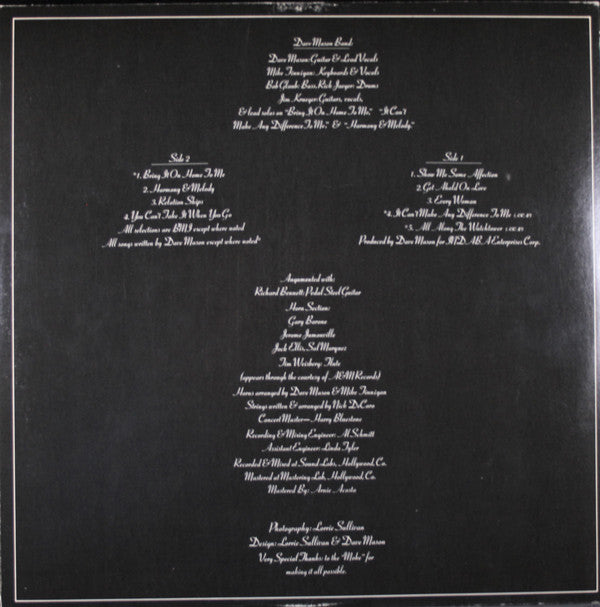 Dave Mason Band:
Dave Mason: Guitar & Lead Vocals
Mike Finnigan: Keyboards & Vocals
Bob Glaub: Bass, Rick Jaeger: Drums
Jim Krueger: Guitars, vocals,
& lead solos on "Bring It On Home To Me," "It Can't
Make Any Difference To Me," & "Harmony & Melody."
Side 2
*1. Bring It On Home To Me
2. Harmony & Melody
3. Relation Ships
4. You Can't Take It When You Go
All selections are BMI except where noted
All songs written by Dave Mason except where noted*
Side 1
1. Show Me Some Affection
2. Get Ahold On Love
3. Every Woman
*4. It Can't Make Any Difference To Me
*5. All Along The Watchtower
Produced by Dave Mason for I.N.D.A.B.A Enterprises Corp.
Augmented with:
Richard Bennett: Pedal Steel Guitar
Horn Section:
Gary Barone
Jerome Jumonville
Jock Ellis, Sal Marquez
Tim Weisberg: Flute
(appears through the courtesy of A&M Records)
Horns arranged by Dave Mason & Mike Finnigan
Strings written & arranged by Nick DeCaro
Concert Master — Harry Bluestone
Recording & Mixing Engineer: Al Schmitt
Assistant Engineer: Linda Tyler
Recorded & Mixed at Sound-Labs, Hollywood, Ca.
Mastered at Mastering Lab, Hollywood, Ca.
Mastered By: Arnie Acosta
Photography: Lorrie Sullivan
Design: Lorrie Sullivan & Dave Mason
Very Special Thanks: to the "Moke" for
making it all possible.